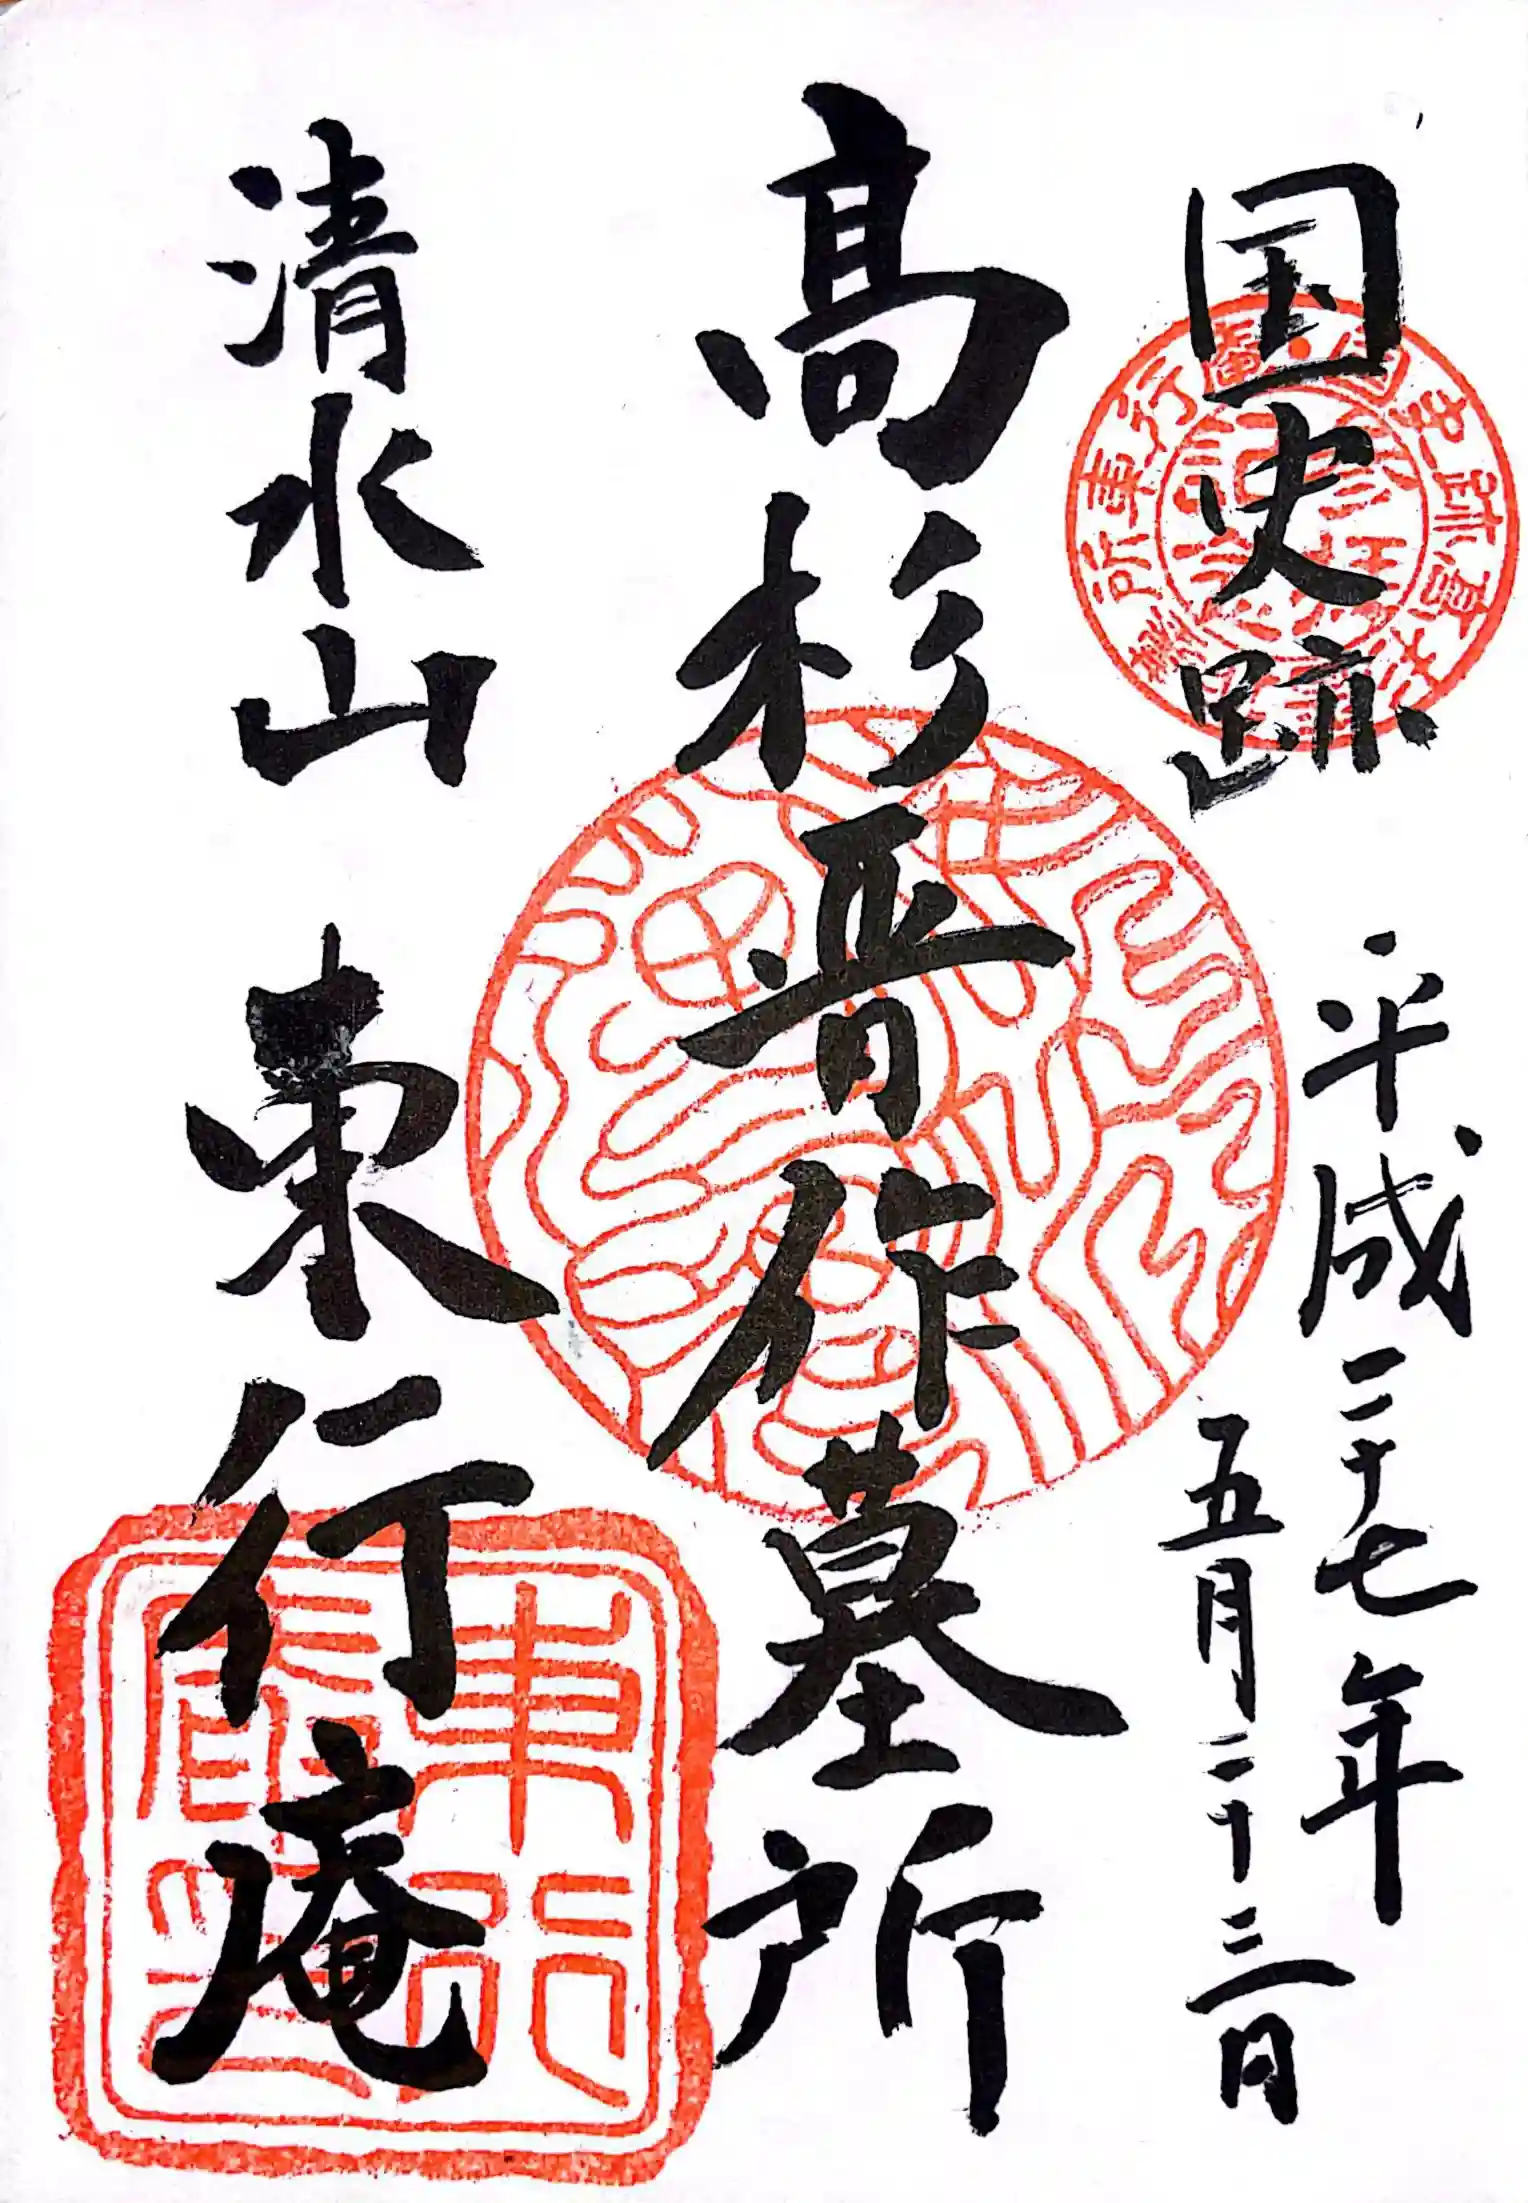 国史跡
平成二十七年
五月二十三日
髙杉晋作墓所
清水山 東行庵